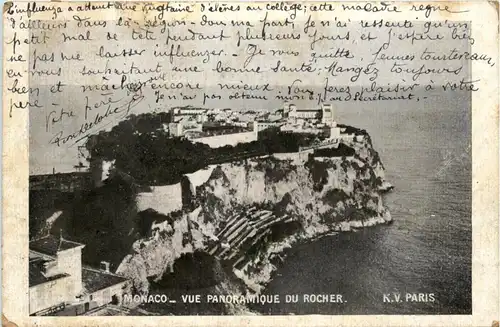 influenza a atteint une vingtaine d'élèves au collège; cette maladie règne
d'ailleurs dans la région - dans ma part je n'ai ressenti qu'un
petit mal de tête pendant plusieurs jours, et j'espère bien
ne pas me laisser influenzer. - Je vous quitte, jeunes tourtereaux,
en vous souhaitant une bonne santé. Mangez toujours
bien et marchez encore mieux. Vous ferez plaisir à votre
père - frère
Je n'ai pas obtenu
Secrétariat
MONACO - VUE PANORAMIQUE DU ROCHER. K.V. PARIS